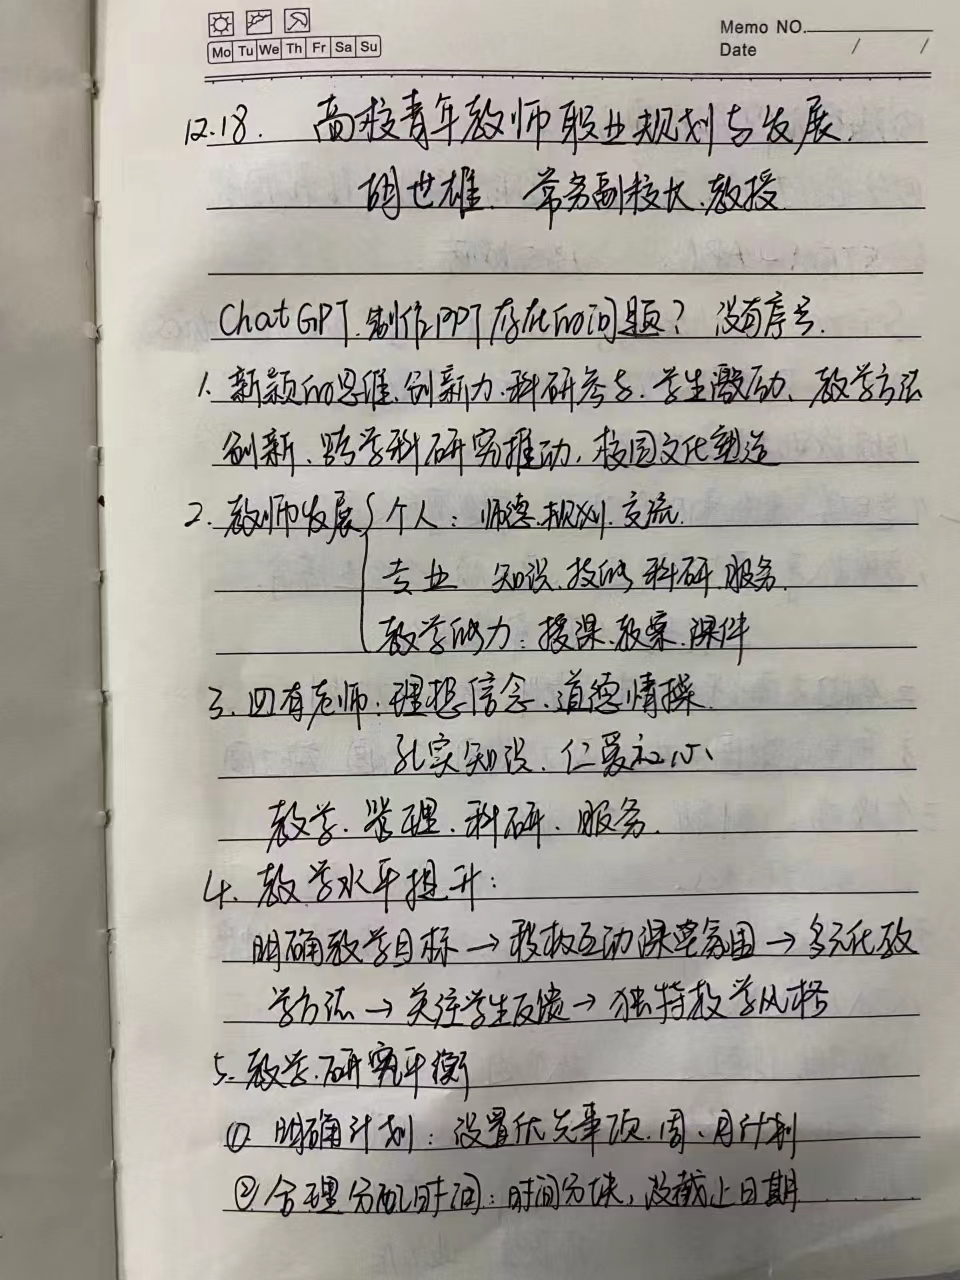 Memo NO.
Mo Tu We Th Fr Sa Su
Date / /
12.18. 高校青年教师职业规划与发展.
胡世雄. 常务副校长.教授
ChatGPT.制作PPT存在的问题? 没有序号.
1. 新颖的思维.创新力.科研参与.学生激励、教学方法
创新、跨学科研究推动,校园文化塑造
2. 教师发展{个人:师德.规划.交流.
专业 知识.技能.科研.服务.
教学能力:授课.教案.课件
3. 四有老师:理想信念、道德情操.
扎实知识、仁爱之心、
教学、管理、科研、服务.
4. 教学水平提升:
明确教学目标→积极互动课堂氛围→多元化教
学方法→关注学生反馈→独特教学风格
5. 教学.研究平衡
① 明确计划:设置优先事项.周、月计划
② 合理分配时间:时间分块,设截止日期